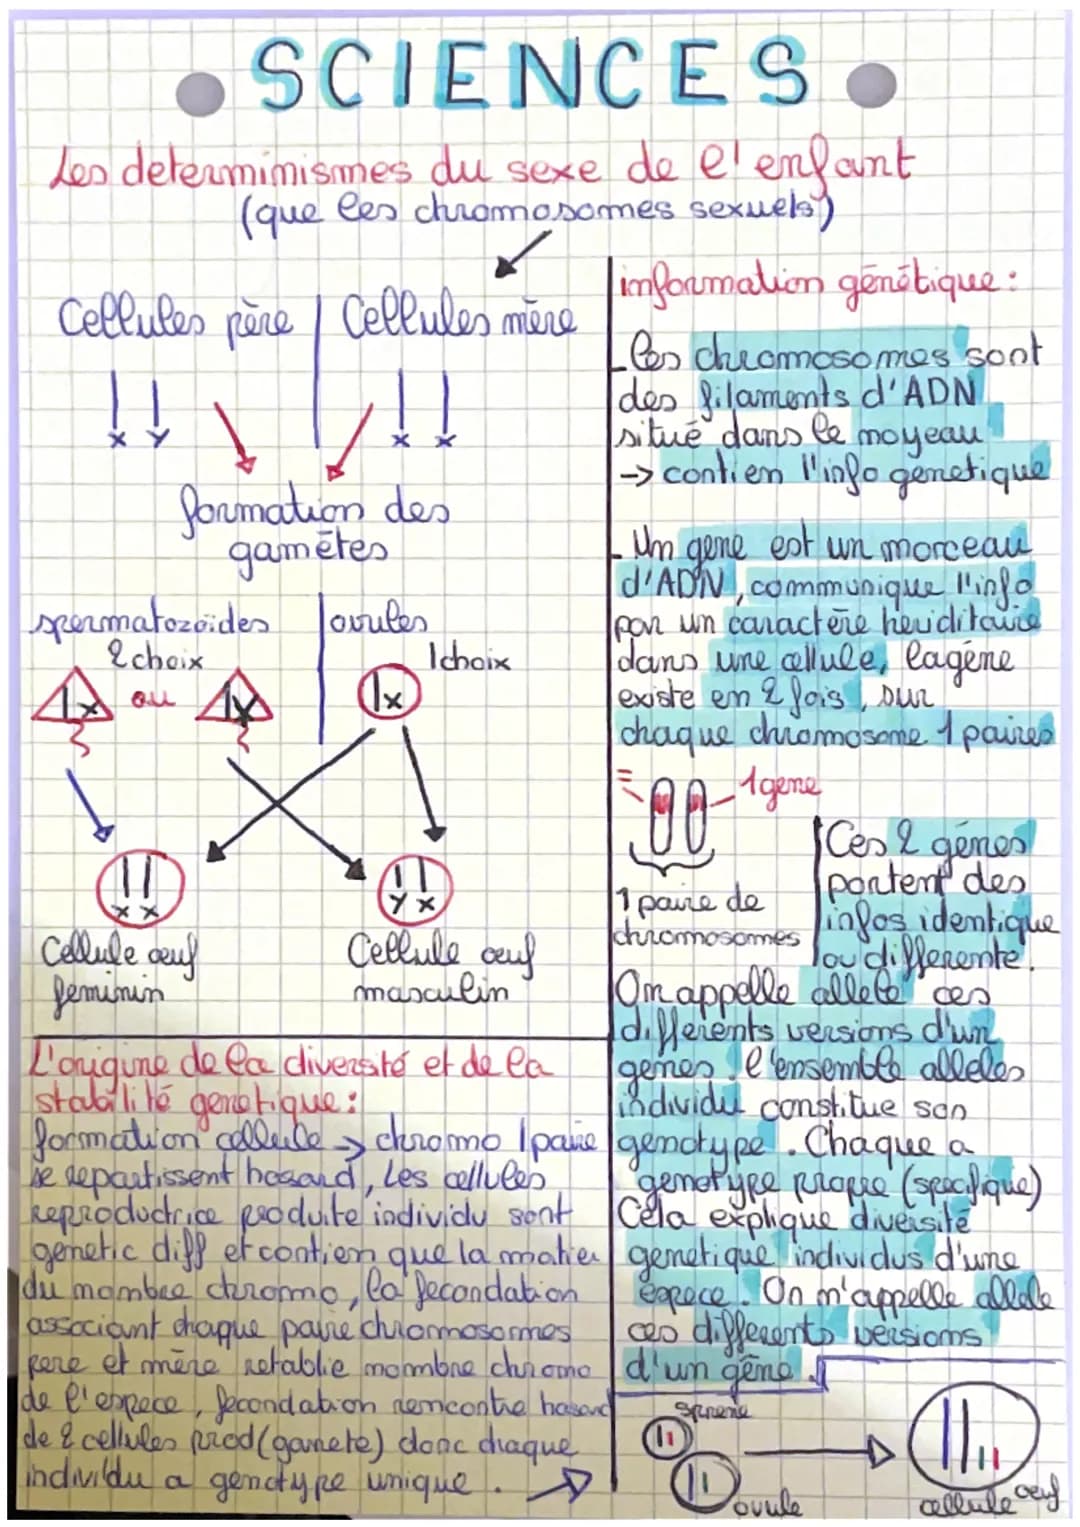 SCIENCES
Les determinismes du sexe de l'enfant
(que les chromosomes sexuels)
Cellules père | Cellules mère
x y x x
formation des
gamètes
spermatozoïdes | ovules
2 choix 1 choix
x ou y x
x x y x
Cellule œuf
feminin
Cellule œuf
masculin
L'origine de la diversité et de la
stabilité genetique :
formation cellule → chromo 1 paire
se repartissent hasard, Les cellules
reproductrice produite individu sont
genetic diff et contien que la matier
du nombre chromo, la fecondation
associant chaque paire chromosomes
pere et mère retablie nombre chromo
de l'espece, fecondation rencontre hasard
de 2 cellules prod (gamete) donc chaque
individu a genotype unique.
information génétique :
- les chromosomes sont
des filaments d'ADN
situé dans le noyeau
→ contien l'info genetique
- Un gene est un morceau
d'ADN, communique l'info
par un caractère heriditaire
dans une cellule, la gène
existe en 2 fois, sur
chaque chromosome 1 paires
= 1 gene
1 paire de
chromosomes
Ces 2 gènes
portent des
infos identique
ou differente.
On appelle allele ces
differents versions d'un
genes. l'ensemble alleles
individu constitue son
genotype. Chaque a
genotype propre (specifique)
Cela explique diversité
genetique individus d'une
espece. On n'appelle allele
ces differents versions
d'un gène.
ovule
cellule œuf